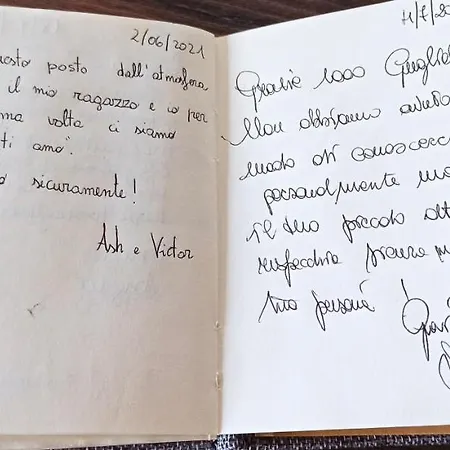 2/06/2021
uesto posto dall'atmosfera
il mio ragazzo e io per
ma volta ci siamo
ti amo".
o sicuramente!
Ash e Victor
11/7/20
Grazie 1000 Gugliel
Non abbiamo avuto
modo di conoscerci
personalmente ma
il tuo piccolo
rispecchia
tua persona!